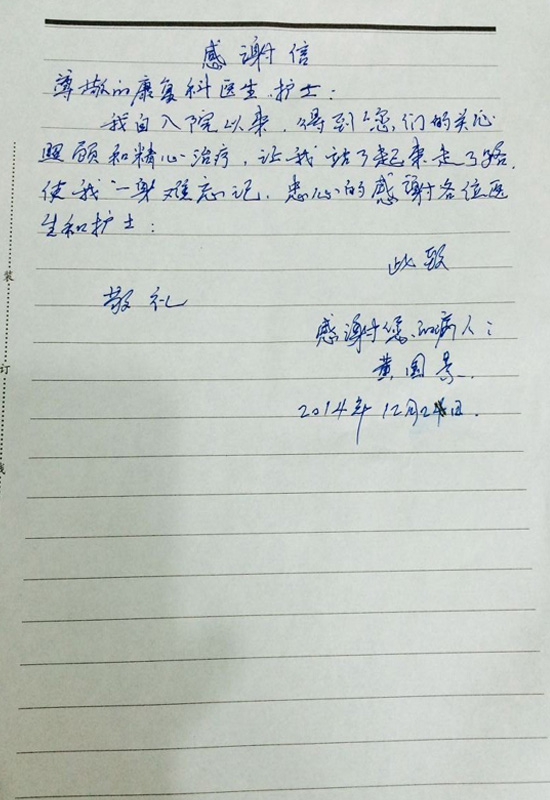 感谢信
尊敬的康复科医生.护士:
我自入院以来,得到您们的关心
照顾和精心治疗,让我站了起来走了路.
使我一身难忘记,忠心的感谢各位医
生和护士:
此致
敬礼
感谢您的病人:
黄国景.
2014年12月24日.
装
订
线